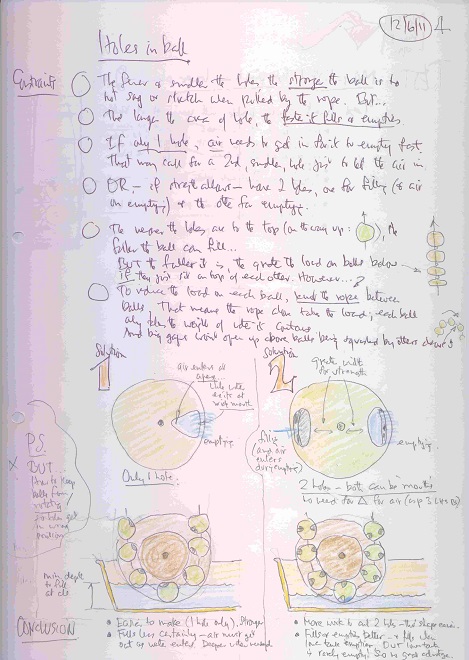 12/6/11 4
Holes in ball
Constraints
The fewer or smaller the holes the stronger the ball is to
not sag or stretch when pulled by the rope. But...
The larger the area of hole, the faster it fills or empties
If only 1 hole, air needs to get in for it to empty fast.
That may call for a 2nd, smaller, hole just to let the air in.
OR – if strength allows – have 2 holes, one for filling (or air
on emptying) or the other for emptying.
The nearer the holes are to the top (on the way up: ), the
fuller the ball can fill..
But the fuller it is, the greater the load on balls below
if they just sit on top of each other. However...
To reduce the load on each ball, knot the rope between
balls. That means the rope then takes the load; each ball
only takes the weight of water it contains
And big gaps won't open up above balls being squashed by others above it
Solution
1
air enters at
apex...
while water
exits at
mouth
emptying
Only 1 hole.
Solution
2
greater width
for strength
filling
(and air
enters
during emptying)
emptying
2 holes – both can be mouths
no need for for air
P.S.
BUT...
How to keep
balls from
rotating
so holes get
in wrong
position?
min depth
to fill
at all
CONCLUSION
Easier to make (1 hole only), stronger
Fills less certainly – air must get
out as water enters. Deeper water needed.
More work to cut 2 holes – this shape easier.